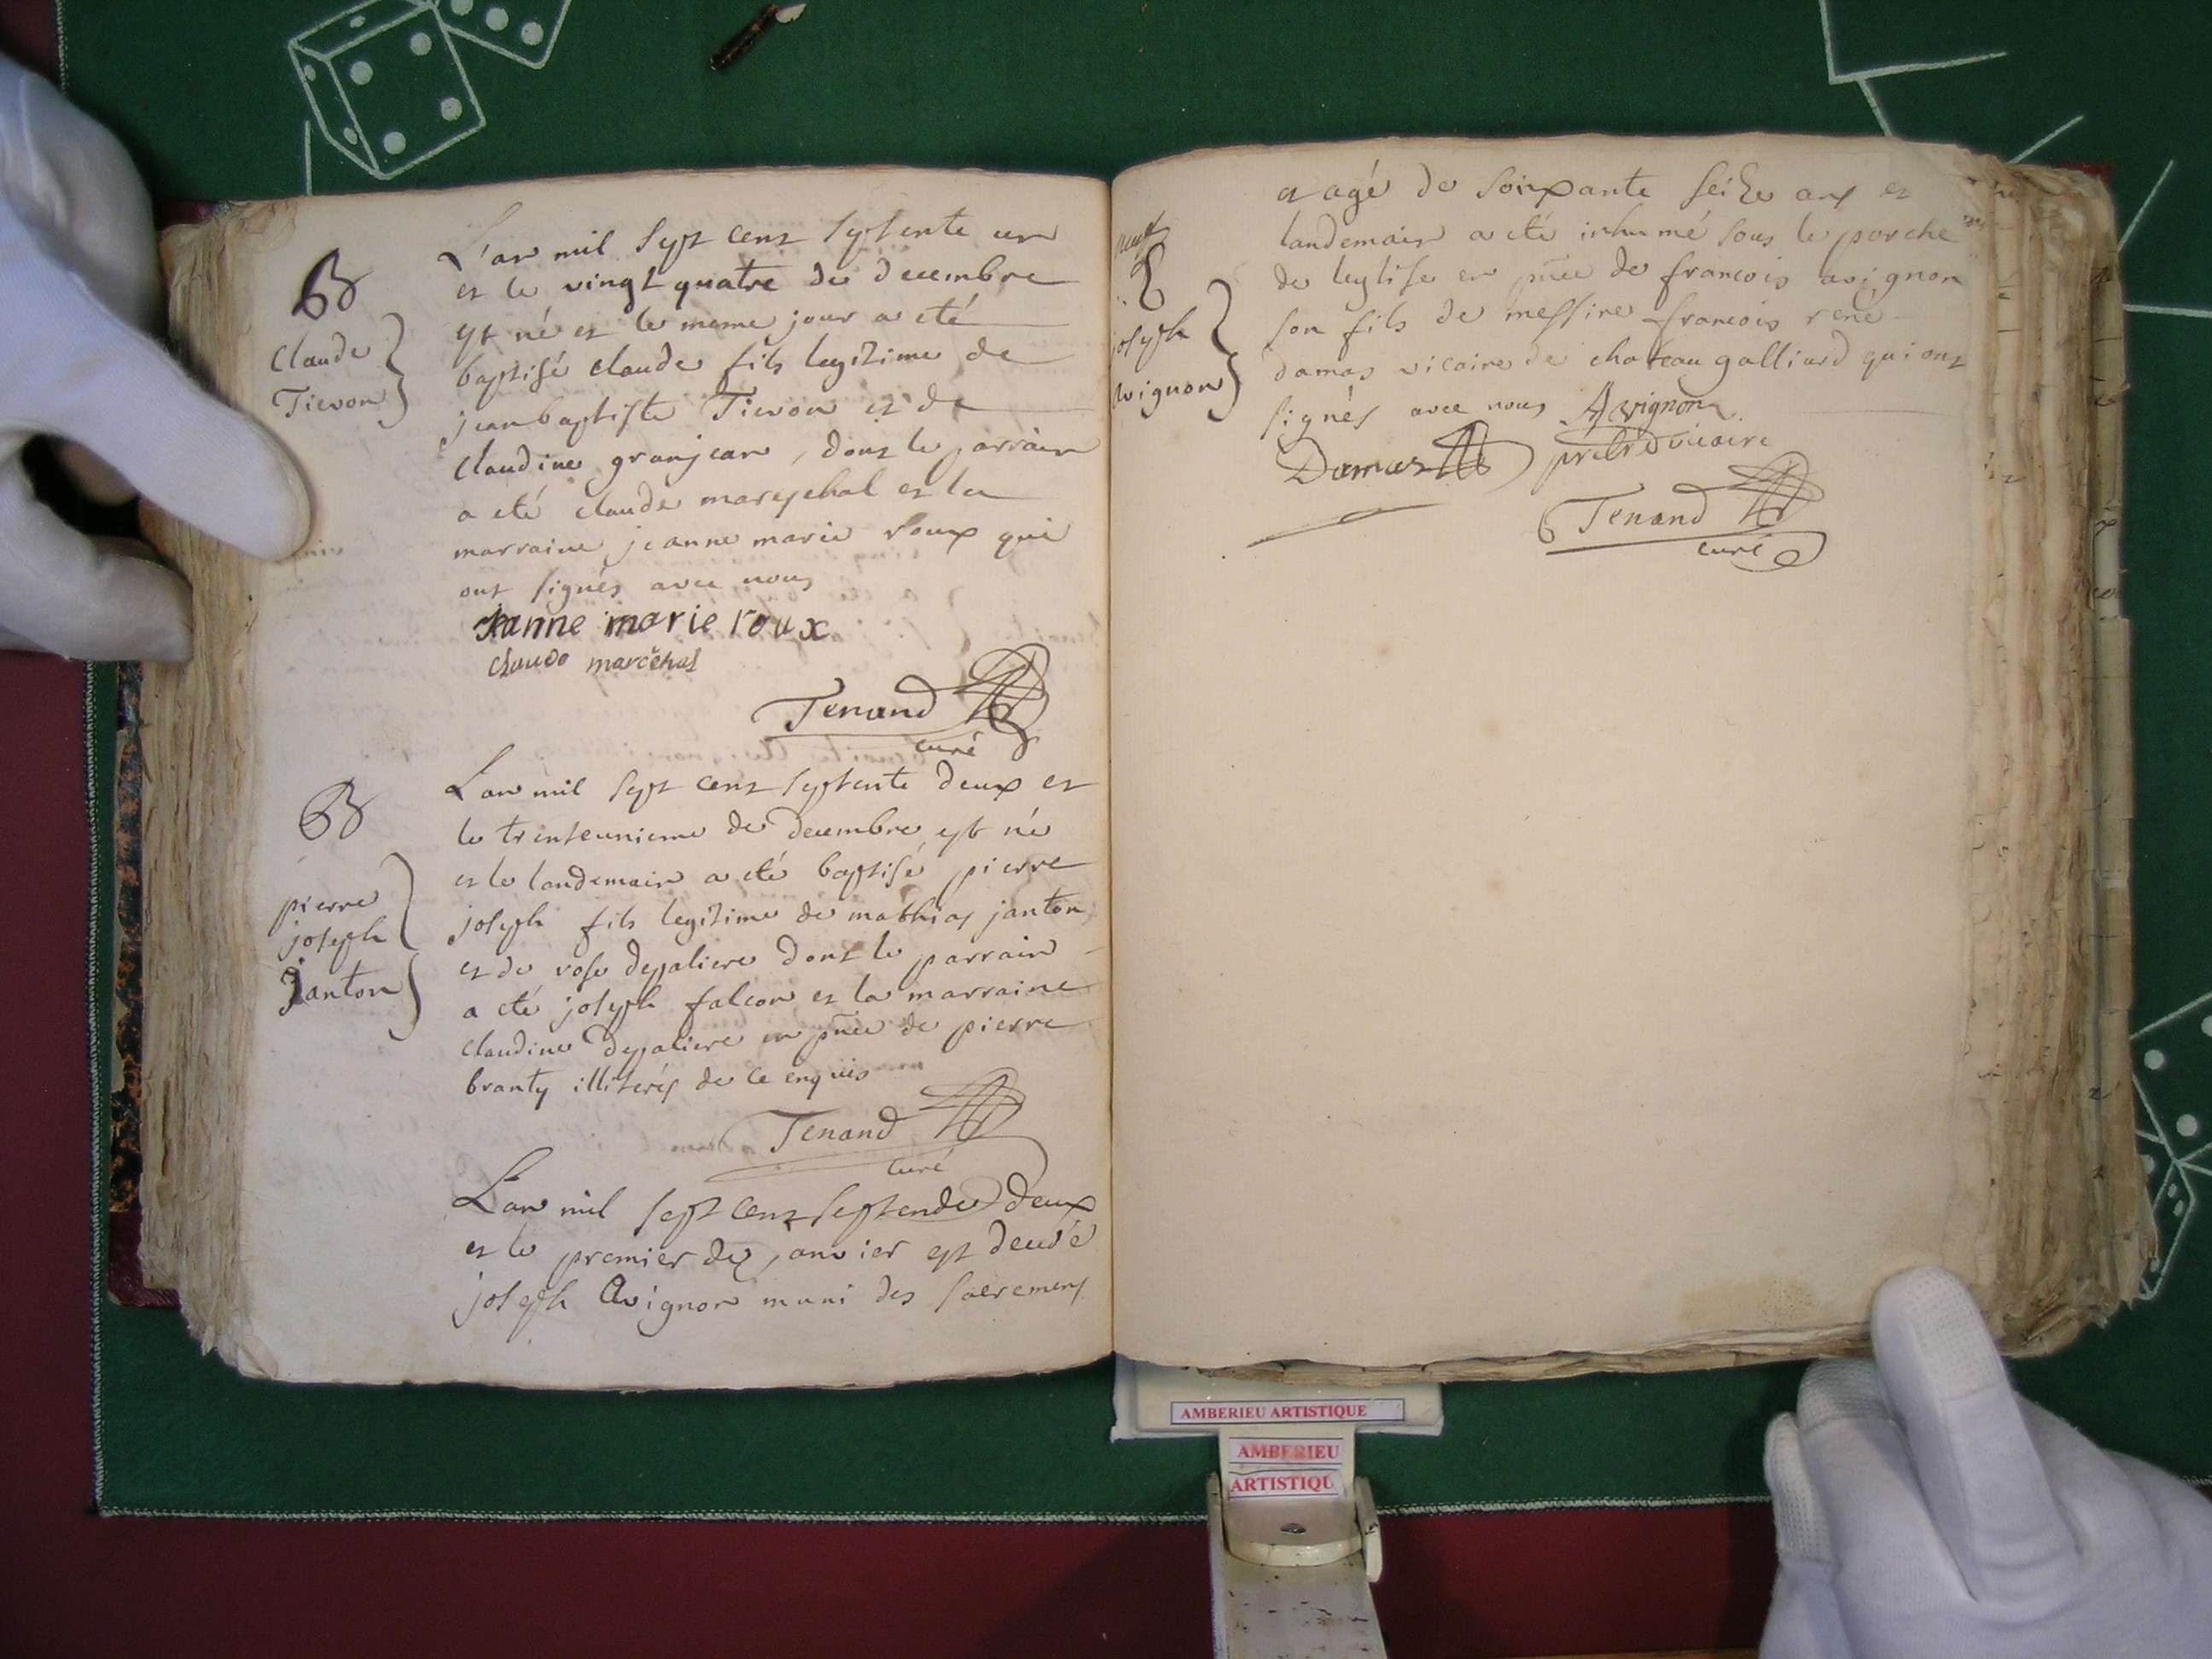 B
Claude
Tievon
L'an mil sept cent septente un
et le vingt quatre de decembre
est né et le meme jour a eté
baptisé claude fils legitime de
jean baptiste Tievon et de
claudine granjean, dont le parrain
a eté claude mareschal et la
marraine jeanne marie roux qui
ont signés avec nous
jeanne marie roux
claude marechal
Tenand
curé
B
pierre
joseph
janton
L'an mil sept cent septente deux et
le trenteunieme de decembre est né
et le landemain a eté baptisé pierre
joseph fils legitime de mathias janton
et de rose depaliere dont le parrain
a eté joseph falcon et la marraine
claudine depaliere en pnce de pierre
branty illiterés de ce enquis
Tenand
curé
L'an mil sept cent septende deux
et le premier de janvier est decedé
joseph Avignon muni des sacremens
neuf
joseph
avignon
et agé de soixante seize ans et
landemain a eté inhumé sous le porche
de leglise en pnce de francois avignon
son fils de messire francois rene
damas vicaire de chateau galliard qui ont
signés avec nous Avignon
Damas prêtre vicaire
Tenand
curé
AMBERIEU ARTISTIQUE
AMBERIEU
ARTISTIQU